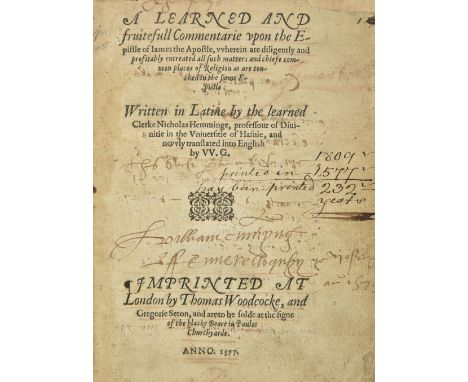 A LEARNED AND
fruitefull Commentarie vpon the E-
pistle of Iames the Apostle, vvherein are diligently and
profitably entreated all such matters and chiefe com-
mon places of Religion as are tou-
ched in the same E-
pistle.
Written in Latine by the learned
Clerke Nicholas Hemminge, professour of Diui-
nitie in the Vniuersitie of Hafnie, and
newly translated into English
by VV. G.
1809
printed in 1577
has been printed 232
years
William
¶IMPRINTED AT
London by Thomas Woodcocke, and
Gregorie Seton, and are to be solde at the signe
of the blacke Beare in Paules
Churchyarde.
ANNO. 1577.